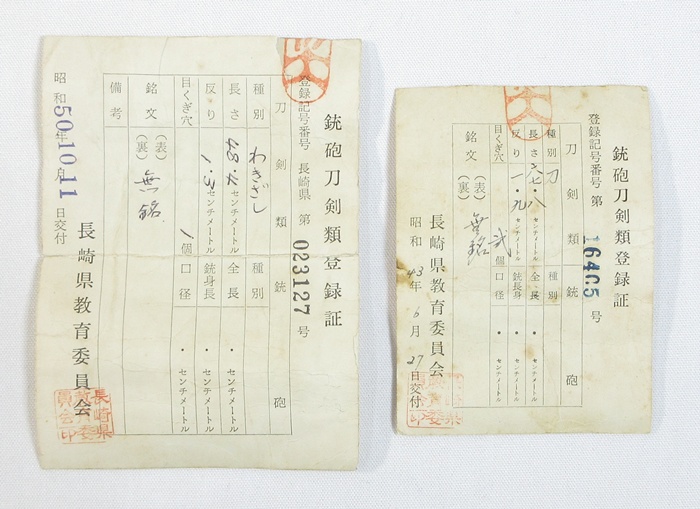 銃砲刀剣類登録証
登録記号番号 長崎県 第 023127 号
刀剣類 銃砲
種別 わきざし 種別
長さ 48.4 センチメートル 全長 ・ センチメートル
反り 1.3 センチメートル 銃身長 ・ センチメートル
目くぎ穴 1 個 口径 ・ センチメートル
銘文 (表) (裏) 無銘
備考
長崎県教育委員会
長崎県教育委員会印
昭和 50.10.11 年 月 日交付
銃砲刀剣類登録証
登録記号番号 第 16405 号
刀剣類 銃砲
種別 刀 種別
長さ 六七・八 センチメートル 全長 ・ センチメートル
反り 一・九 センチメートル 銃身長 ・ センチメートル
目くぎ穴 弐 個 口径 ・ センチメートル
銘文 (表) (裏) 無銘
長崎県教育委員会
昭和 43 年 6 月 27 日交付